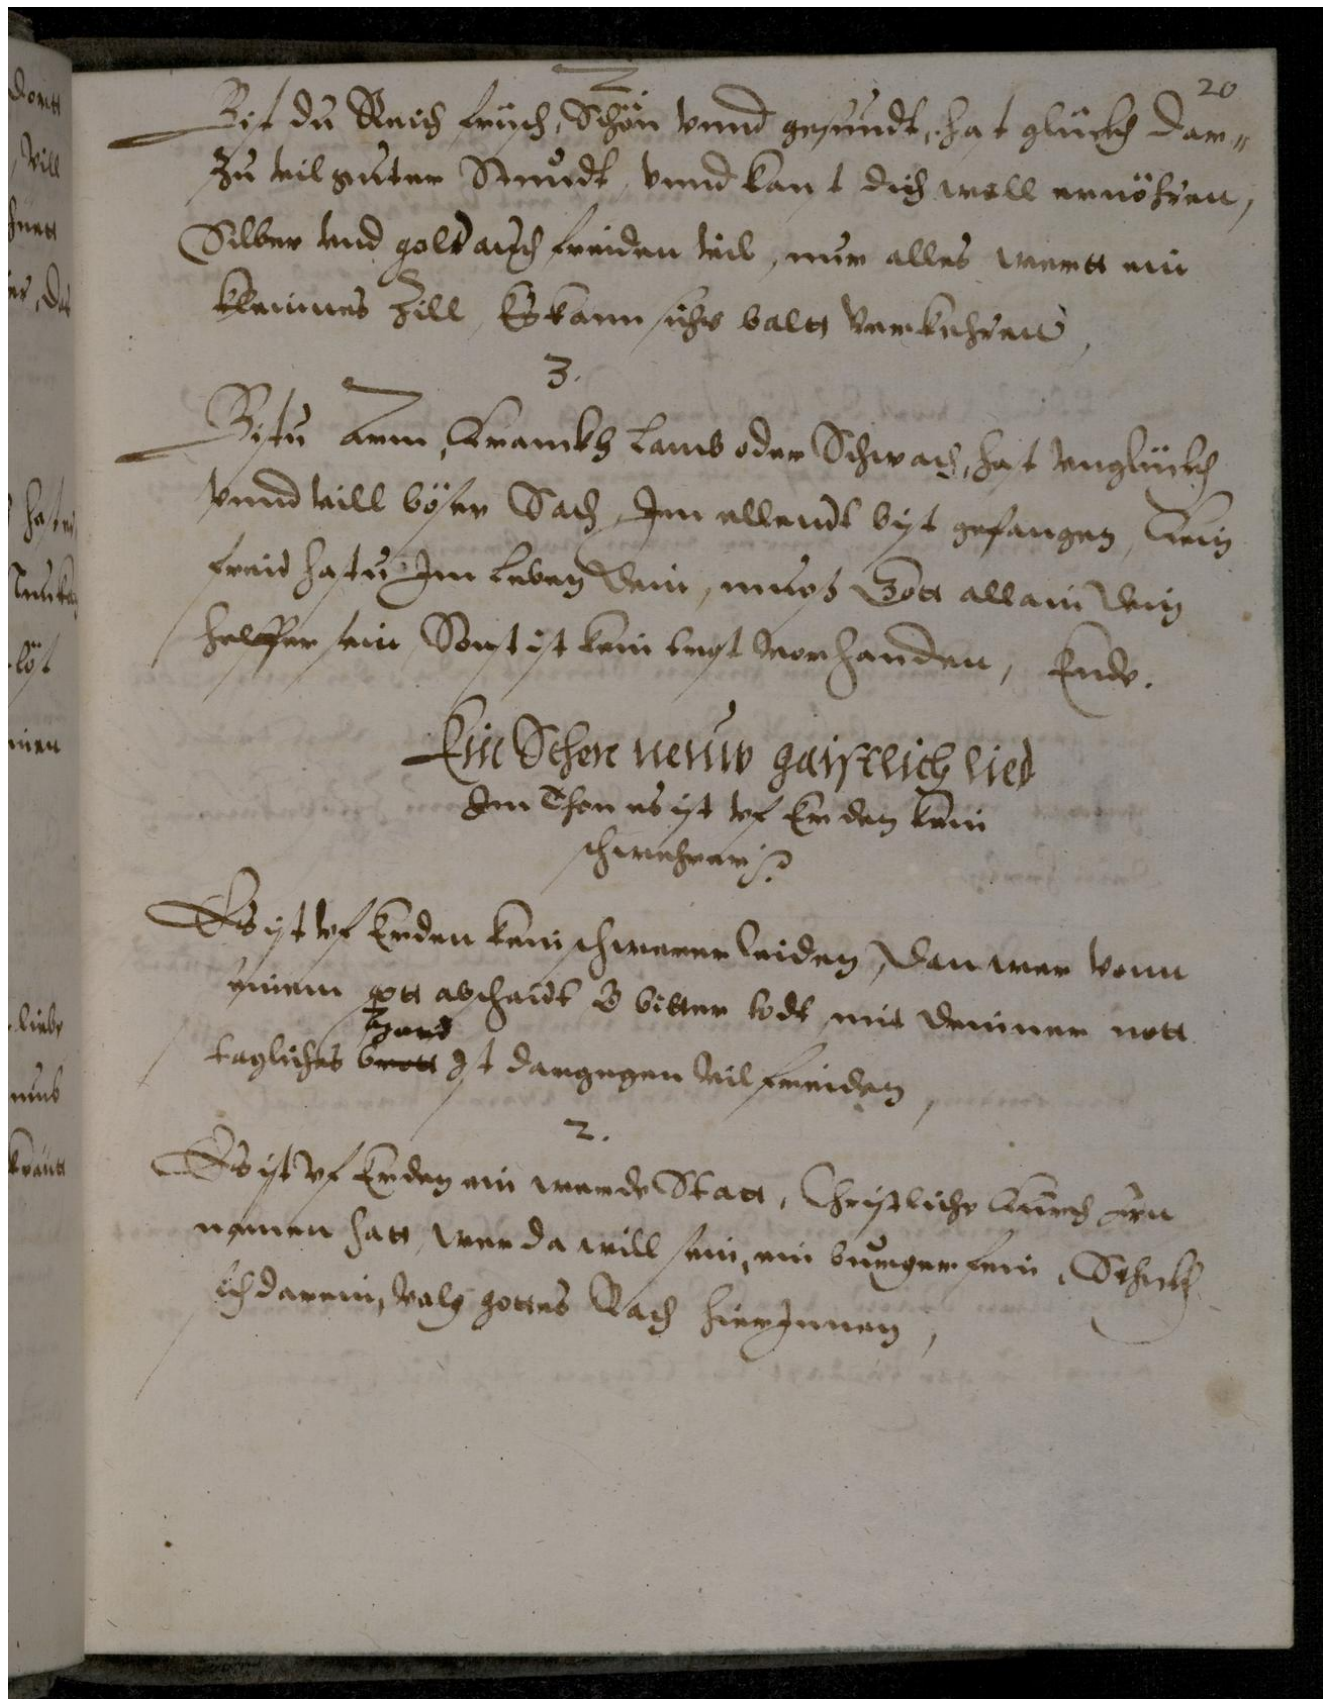 20
2.
Bist du Reich frisch, Schön vnnd gesundt, hast glückh dar„
zu vil guter Steundt, vnnd kanst dich woll ernöhren,
Silber vnd golt auch freiden vil, nur alles wertt ein
kleines Zill, Es kann sichs baltt verkehren,
3.
Bistu Arm, Kranckh Lamb oder Schwach, hast vnglückh
vnnd vill böser Sach, Im ellendt bist gefangen, Kein
freid hastu Im Leben dein, muoß Gott allain dein
helffer sein, Sonst ist kein lust vorhanden, Ende.
Ein Schon neuw gaistlich lied
Im Thon es ist vf Erden kein
schwehrer
Es ist vf Erden kein schwerer leiden, Dan wer vonn
seinem gott abschaidt
hand
tagliches brott Ist dargegen vil freiden,
2.
Es ist vf Erden ein werde Statt, Christliche Kirch Iren
namen hatt, wer da will sein, ein burger fein, Schickh
sich darein, volg gottes Rach hierInnen,